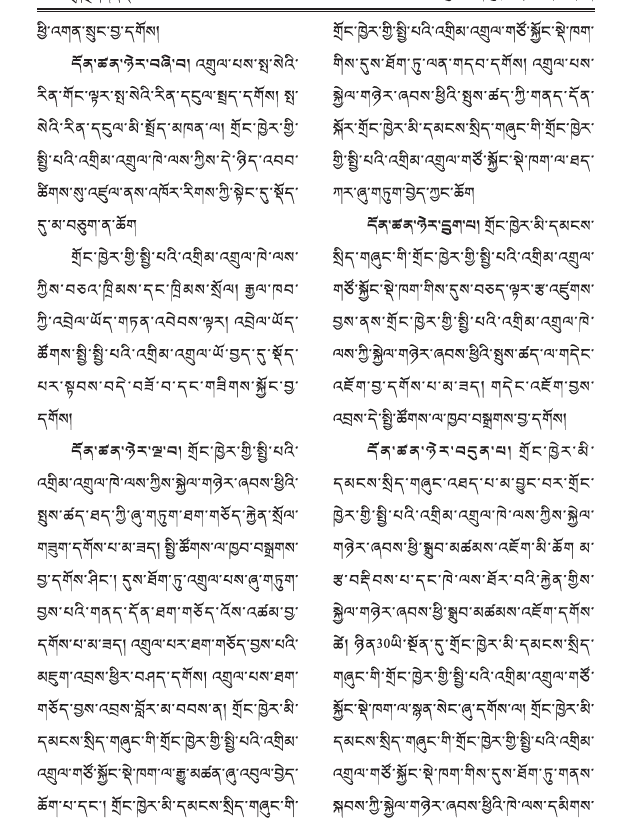 ཕྱི་འགན་སྲུང་བྱ་དགོས།
དོན་ཚན་ཉེར་བཞི་བ། འགྲུལ་པས་སྤ་སེའི་
རིན་གོང་ལྟར་སྤ་སེའི་རིན་དངུལ་སྤྲད་དགོས། སྤ་
སེའི་རིན་དངུལ་མི་སྤྲོད་མཁན་ལ། གྲོང་ཁྱེར་གྱི་
སྤྱི་པའི་འགྲིམ་འགྲུལ་ཁེ་ལས་ཀྱིས་དེ་ཉིད་འབབ་
ཚིགས་སུ་འཛུལ་ནས་འཁོར་རིགས་ཀྱི་སྟེང་དུ་སྡོད་
དུ་མ་བཅུག་ན་ཆོག
གྲོང་ཁྱེར་གྱི་སྤྱི་པའི་འགྲིམ་འགྲུལ་ཁེ་ལས་
ཀྱིས་བཅའ་ཁྲིམས་དང་ཁྲིམས་སྲོལ། རྒྱལ་ཁབ་
ཀྱི་འབྲེལ་ཡོད་གཏན་འབེབས་ལྟར། འབྲེལ་ཡོད་
ཚོགས་སྤྱི་སྤྱི་པའི་འགྲིམ་འགྲུལ་ཡོ་བྱད་དུ་སྡོད་
པར་སྟབས་བདེ་བཟོ་བ་དང་གཟིགས་སྐྱོང་བྱ་
དགོས།
དོན་ཚན་ཉེར་ལྔ་བ། གྲོང་ཁྱེར་གྱི་སྤྱི་པའི་
འགྲིམ་འགྲུལ་ཁེ་ལས་ཀྱིས་སྐྱེལ་གཉེར་ཞབས་ཕྱིའི་
སྤུས་ཚད་ཐད་ཀྱི་ཞུ་གཏུག་ཐག་གཅོད་རྐྱེན་སྲོལ་
གཟུག་དགོས་པ་མ་ཟད། སྤྱི་ཚོགས་ལ་ཁྱབ་བསྒྲགས་
བྱ་དགོས་ཤིང་། དུས་ཐོག་ཏུ་འགྲུལ་པས་ཞུ་གཏུག་
བྱས་པའི་གནད་དོན་ཐག་གཅོད་འོས་འཚམ་བྱ་
དགོས་པ་མ་ཟད། འགྲུལ་པར་ཐག་གཅོད་བྱས་པའི་
མཇུག་འབྲས་ཕྱིར་བཤད་དགོས། འགྲུལ་པས་ཐག་
གཅོད་བྱས་འབྲས་བློར་མ་བབས་ན། གྲོང་ཁྱེར་མི་
དམངས་སྲིད་གཞུང་གི་གྲོང་ཁྱེར་གྱི་སྤྱི་པའི་འགྲིམ་
འགྲུལ་གཙོ་སྐྱོང་སྡེ་ཁག་ལ་རྒྱུ་མཚན་ཞུ་འབུལ་བྱེད་
ཆོག་པ་དང་། གྲོང་ཁྱེར་མི་དམངས་སྲིད་གཞུང་གི་
གྲོང་ཁྱེར་གྱི་སྤྱི་པའི་འགྲིམ་འགྲུལ་གཙོ་སྐྱོང་སྡེ་ཁག་
གིས་དུས་ཐོག་ཏུ་ལན་གདབ་དགོས། འགྲུལ་པས་
སྐྱེལ་གཉེར་ཞབས་ཕྱིའི་སྤུས་ཚད་ཀྱི་གནད་དོན་
སྐོར་གྲོང་ཁྱེར་མི་དམངས་སྲིད་གཞུང་གི་གྲོང་ཁྱེར་
གྱི་སྤྱི་པའི་འགྲིམ་འགྲུལ་གཙོ་སྐྱོང་སྡེ་ཁག་ལ་ཐད་
ཀར་ཞུ་གཏུག་བྱེད་ཀྱང་ཆོག
དོན་ཚན་ཉེར་དྲུག་པ། གྲོང་ཁྱེར་མི་དམངས་
སྲིད་གཞུང་གི་གྲོང་ཁྱེར་གྱི་སྤྱི་པའི་འགྲིམ་འགྲུལ་
གཙོ་སྐྱོང་སྡེ་ཁག་གིས་དུས་བཅད་ལྟར་རྩ་འཛུགས་
བྱས་ནས་གྲོང་ཁྱེར་གྱི་སྤྱི་པའི་འགྲིམ་འགྲུལ་ཁེ་
ལས་ཀྱི་སྐྱེལ་གཉེར་ཞབས་ཕྱིའི་སྤུས་ཚད་ལ་གདེང་
འཇོག་བྱ་དགོས་པ་མ་ཟད། གདེང་འཇོག་བྱས་
འབྲས་དེ་སྤྱི་ཚོགས་ལ་ཁྱབ་བསྒྲགས་བྱ་དགོས།
དོན་ཚན་ཉེར་བདུན་པ། གྲོང་ཁྱེར་མི་
དམངས་སྲིད་གཞུང་འཐད་པ་མ་བྱུང་བར་གྲོང་
ཁྱེར་གྱི་སྤྱི་པའི་འགྲིམ་འགྲུལ་ཁེ་ལས་ཀྱིས་སྐྱེལ་
གཉེར་ཞབས་ཕྱི་སྒྲུབ་མཚམས་འཇོག་མི་ཆོག མ་
རྩ་བརྡིབས་པ་དང་ཁེ་ལས་ཐོར་བའི་རྐྱེན་གྱིས་
སྐྱེལ་གཉེར་ཞབས་ཕྱི་སྒྲུབ་མཚམས་འཇོག་དགོས་
ཚེ། ཉིན30ཡི་སྔོན་དུ་གྲོང་ཁྱེར་མི་དམངས་སྲིད་
གཞུང་གི་གྲོང་ཁྱེར་གྱི་སྤྱི་པའི་འགྲིམ་འགྲུལ་གཙོ་
སྐྱོང་སྡེ་ཁག་ལ་སྙན་སེང་ཞུ་དགོས་ལ། གྲོང་ཁྱེར་མི་
དམངས་སྲིད་གཞུང་གི་གྲོང་ཁྱེར་གྱི་སྤྱི་པའི་འགྲིམ་
འགྲུལ་གཙོ་སྐྱོང་སྡེ་ཁག་གིས་དུས་ཐོག་ཏུ་གནས་
སྐབས་ཀྱི་སྐྱེལ་གཉེར་ཞབས་ཕྱིའི་ཁེ་ལས་དམིགས་